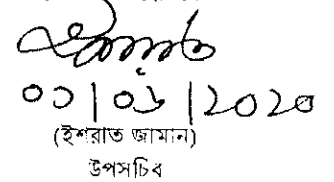 ০১|০৬|২০২০
(ইশরাত জামান)
উপসচিব